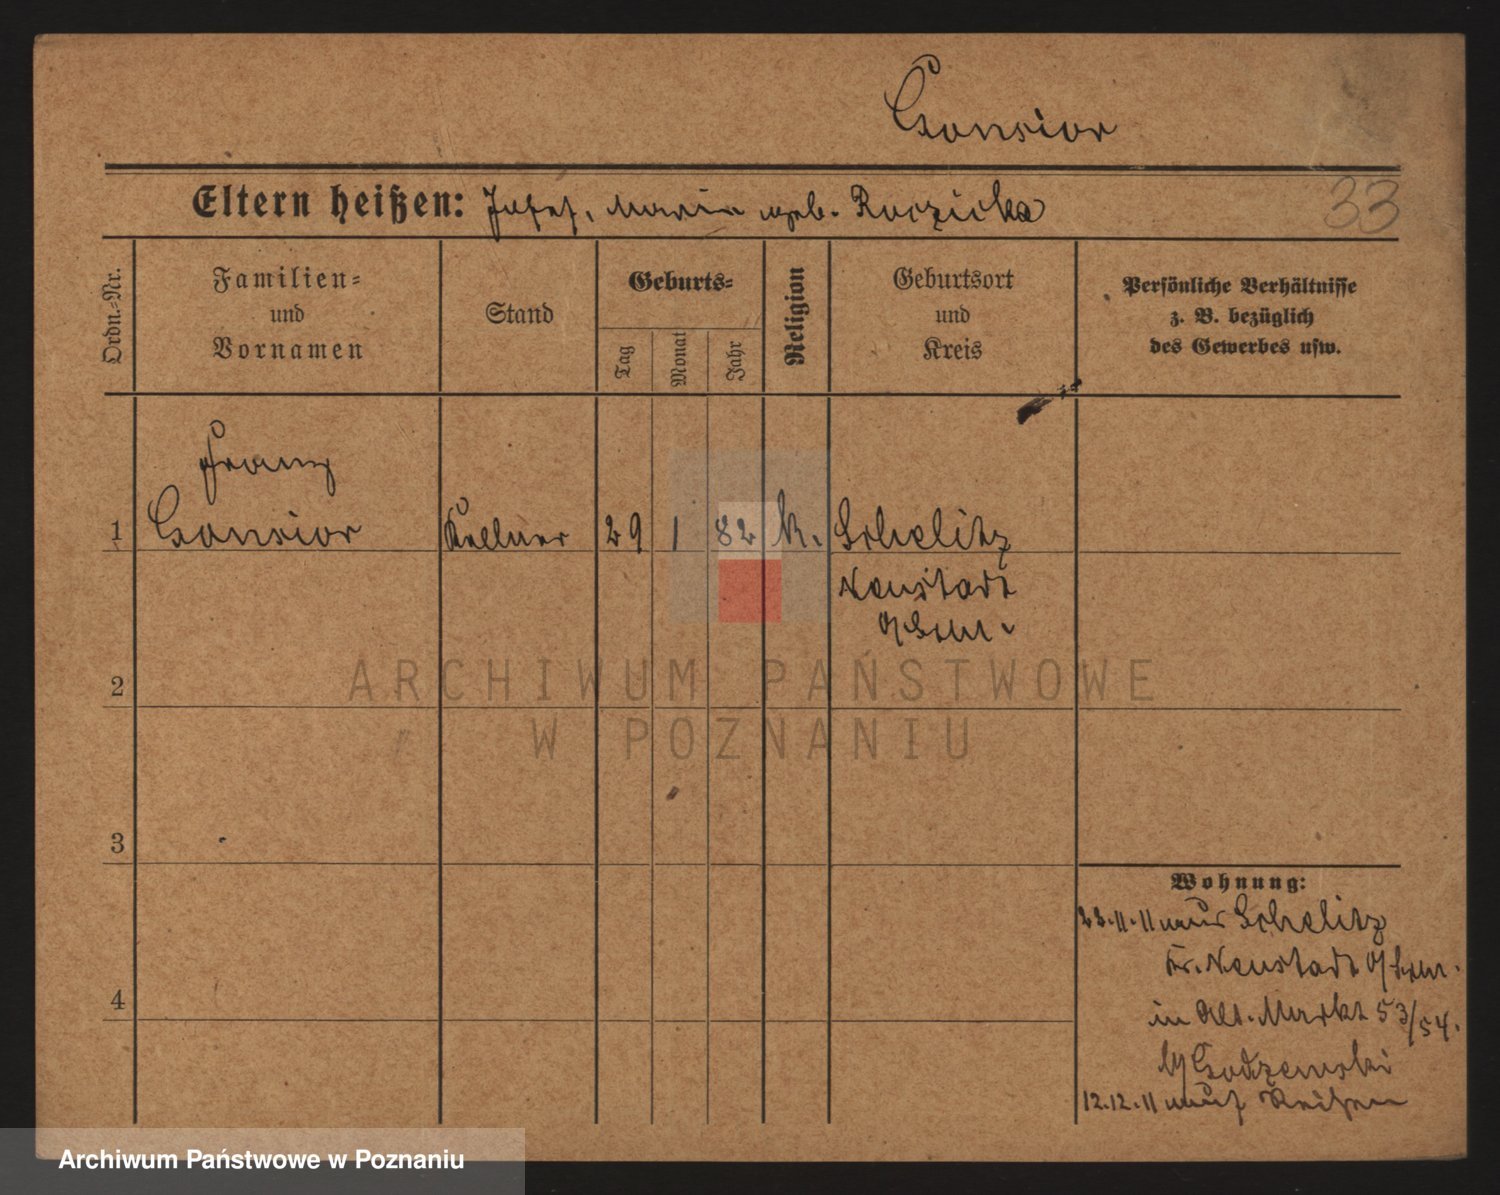 Gonsior
Eltern heißen: Josef, Marie geb. Ruczicka
33
Ordn.-Nr.
Familien-
und
Vornamen
Stand
Geburts-
Tag
Monat
Jahr
Religion
Geburtsort
und
Kreis
Persönliche Verhältnisse
z. B. bezüglich
des Gewerbes usw.
Franz
1 Gonsior Kellner 29 1 82 k. Schelitz
Neustadt
O/Schl.
2
3
4
Wohnung:
23.11.11 aus Schelitz
Kr. Neustadt O/Schl.
in Alt. Markt 53/54.
b/
12.12.11 auf Reisen
ARCHIWUM PAŃSTWOWE
W POZNANIU
Archiwum Państwowe w Poznaniu